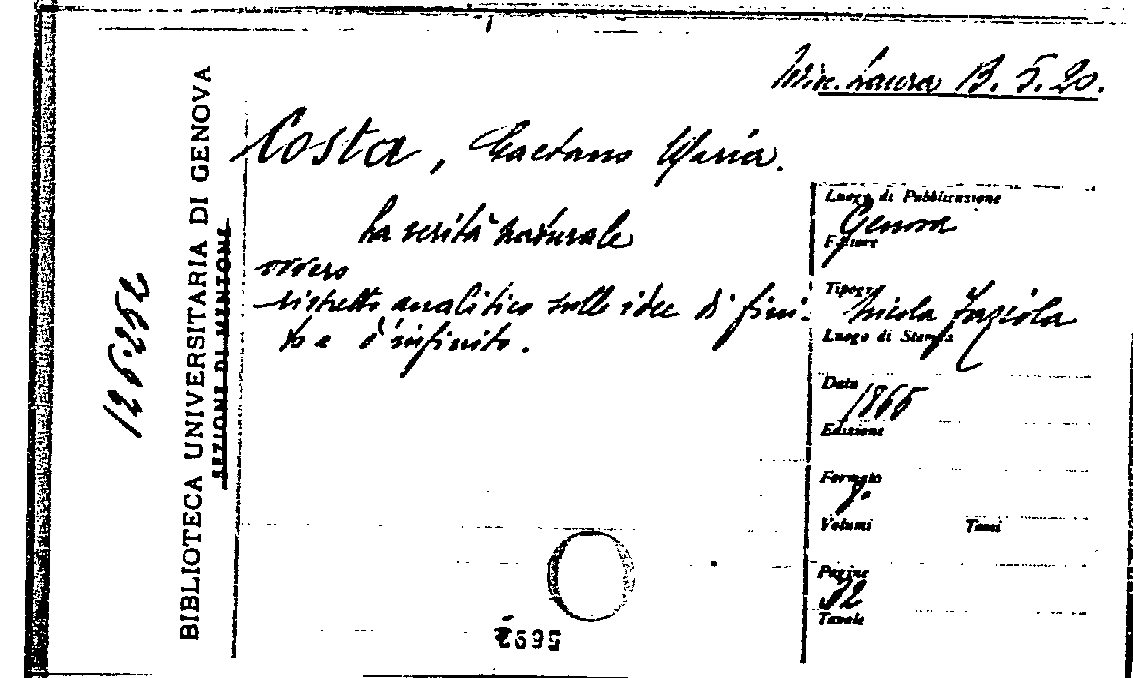 Min. Laura B. 5. 20.
Costa, Gaetano Maria.
La verità naturale
ovvero
ristretto analitico sulle idee di fini-
to e d'infinito.
Luogo di Pubblicazione
Genova
Editore
Tipogr.
Nicola Faziola
Luogo di Stampa
Data
1866
Edizione
Formato
Volumi Tomi
Pagine
32
Tavole
BIBLIOTECA UNIVERSITARIA DI GENOVA
SEZIONE DI MENTONE
126.252